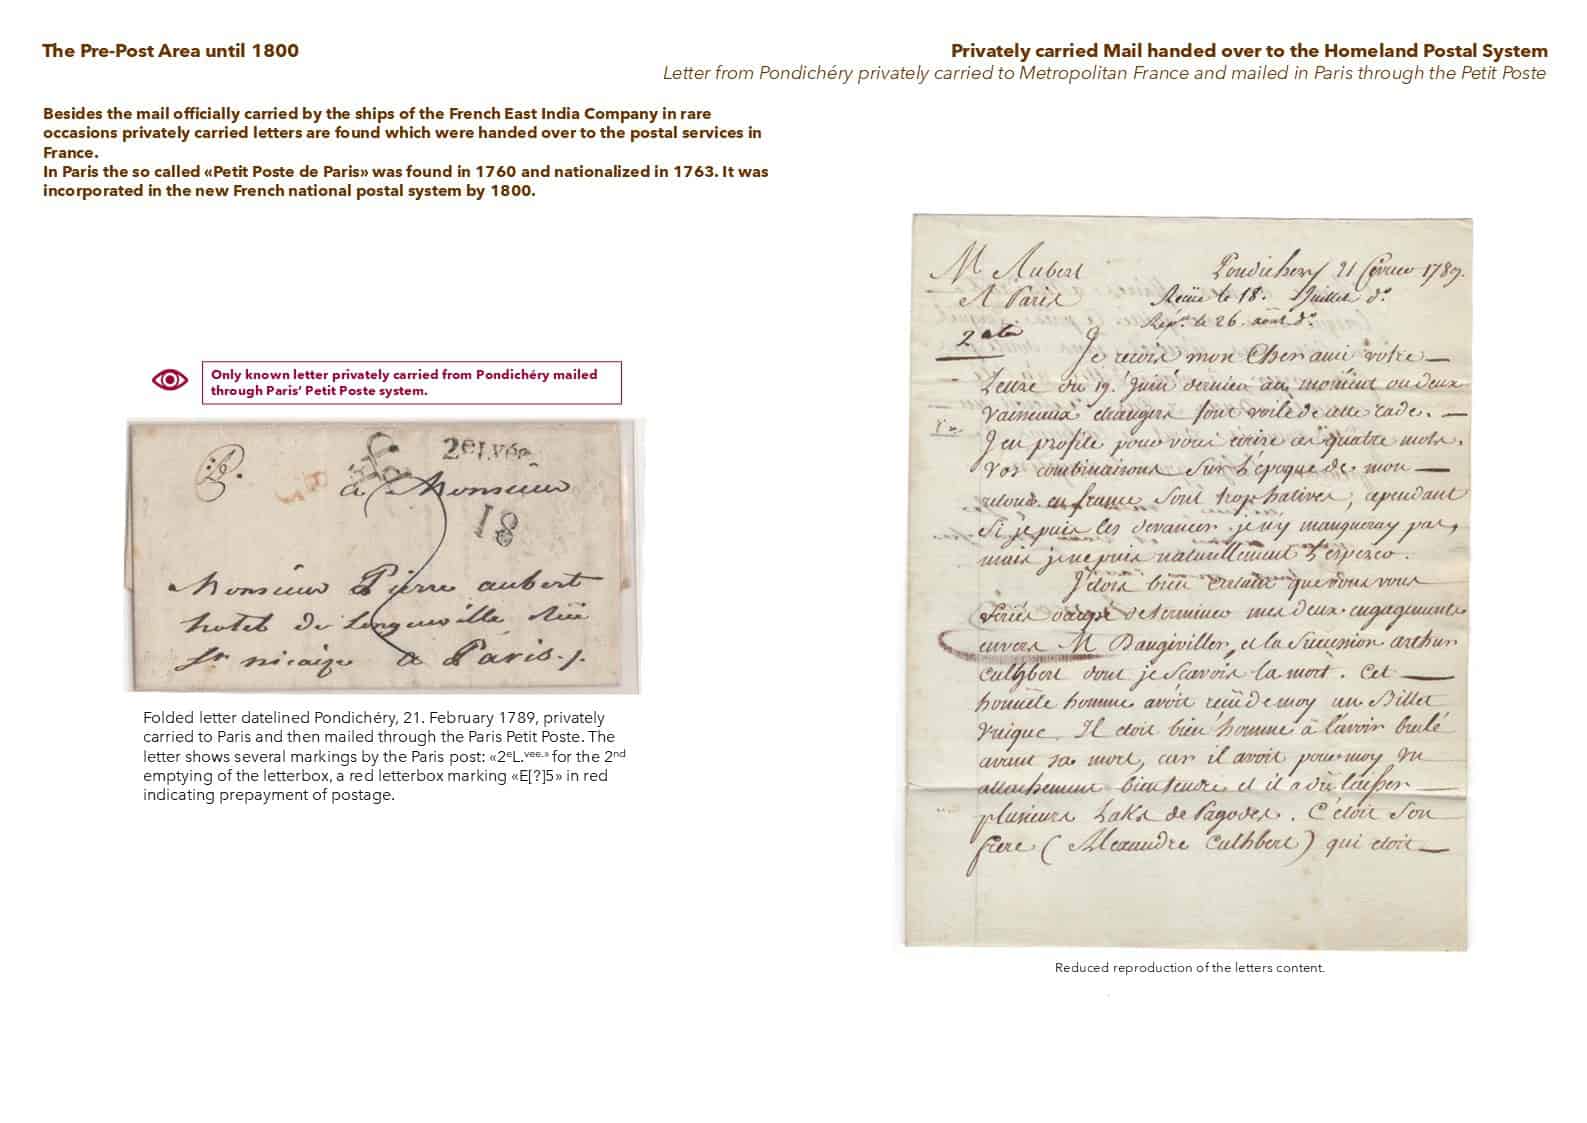 The Pre-Post Area until 1800
Privately carried Mail handed over to the Homeland Postal System
Letter from Pondichéry privately carried to Metropolitan France and mailed in Paris through the Petit Poste
Besides the mail officially carried by the ships of the French East India Company in rare
occasions privately carried letters are found which were handed over to the postal services in
France.
In Paris the so called «Petit Poste de Paris» was found in 1760 and nationalized in 1763. It was
incorporated in the new French national postal system by 1800.
Only known letter privately carried from Pondichéry mailed
through Paris' Petit Poste system.
2eLvée
a Monsieur
18
Monsieur Pierre aubert
hotel de Longueville Rüe
St nicaise a Paris ./.
Folded letter datelined Pondichéry, 21. February 1789, privately
carried to Paris and then mailed through the Paris Petit Poste. The
letter shows several markings by the Paris post: «2eL.vee.» for the 2nd
emptying of the letterbox, a red letterbox marking «E[?]5» in red
indicating prepayment of postage.
M Aubert
Pondichery 21 fevrier 1789.
A Paris
Reçüe le 18. Juillet do
Repe le 26. août do
2ata
Je reçois mon Cher ami votre
Lettre du 19. Juin dernier au moment ou deux
Vaisseaux etrangers font voile de cette rade.
J'en profite pour vous ecrire ces quatre mots.
Vos combinaisons Sur l'epoque de mon
retour en france Sont trop hatives, cependant
Si je puis les devancer je n'y manqueray pas,
mais je ne puis naturellement l'esperer.
J'etois bien certain que vous vous
Seriés determiner mes deux engagements
envers M Daugiviller, et la Sucession arthur
Cuthbert dont je Scavois la mort. Cet
honnête homme avoit reçü de moy un Billet
Unique. Il etoit bien homme à l'avoir brulé
avant sa mort, car il avoit pour moy un
attachement bien tendre et il a dû laisser
plusieurs Laks de Pagodes. C'étoit Son
frere (Alexandre Cuthbert) qui etoit
Reduced reproduction of the letters content.